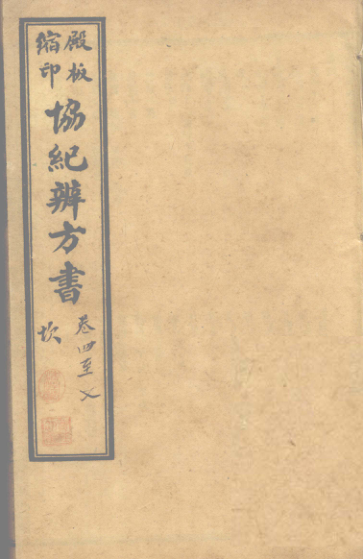 殿板
縮印
協紀辨方書
卷四至乂
坎